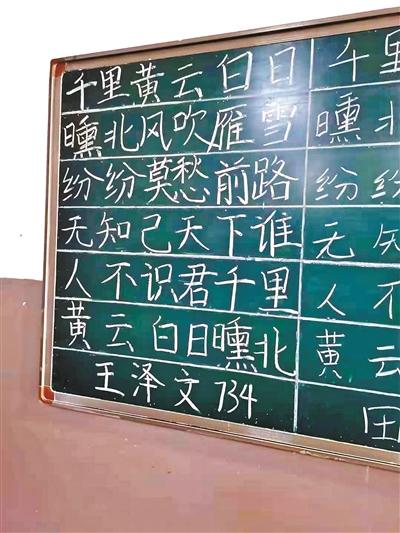 千里黄云白日 千里
曛北风吹雁雪 曛北
纷纷莫愁前路 纷纷
无知己天下谁 无知
人不识君千里 人不
黄云白日曛北 黄云
王泽文734